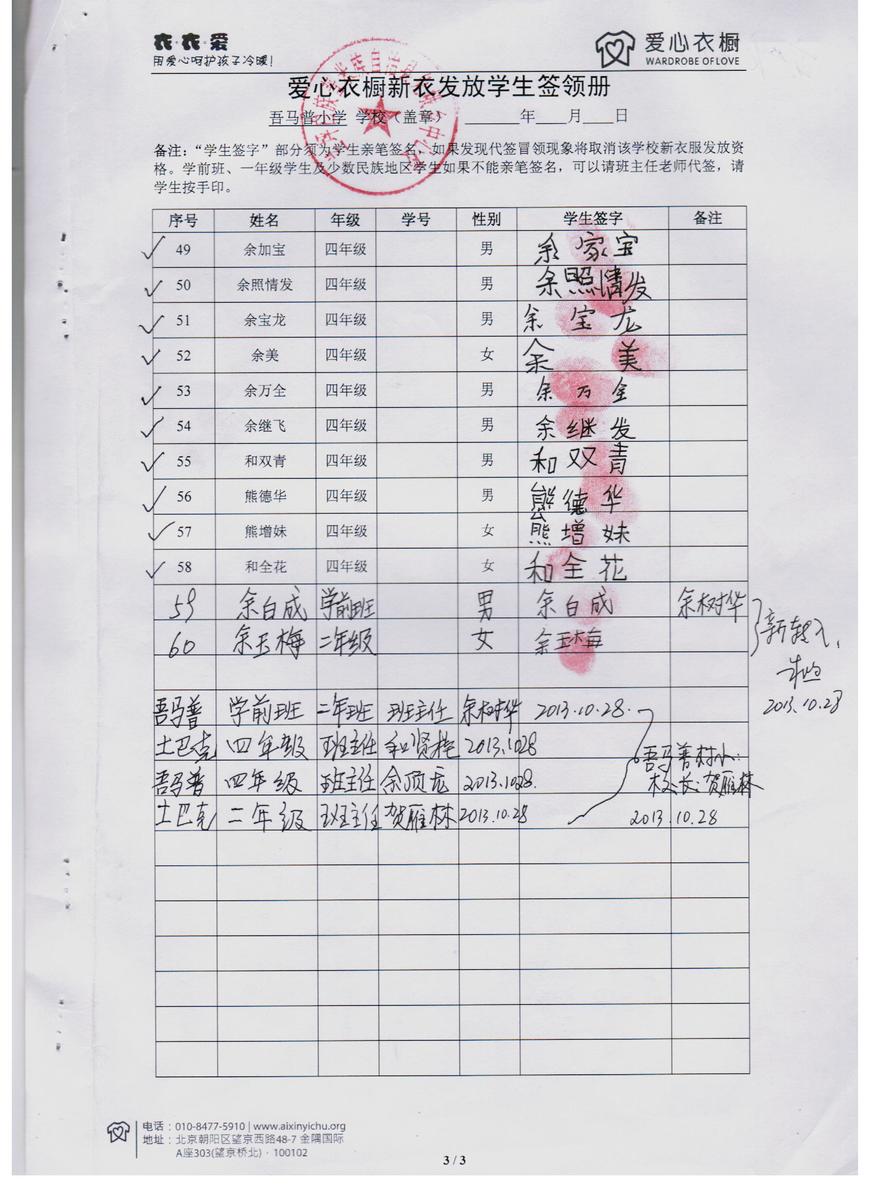 衣·衣·爱
用爱心呵护孩子冷暖!
爱心衣橱
WARDROBE OF LOVE
爱心衣橱新衣发放学生签领册
吾马普小学 学校(盖章) ______年____月____日
备注:“学生签字”部分须为学生亲笔签名,如果发现代签冒领现象将取消该学校新衣服发放资
格。学前班、一年级学生及少数民族地区学生如果不能亲笔签名,可以请班主任老师代签,请
学生按手印。
序号 姓名 年级 学号 性别 学生签字 备注
49 余加宝 四年级 男 余家宝
50 余照情发 四年级 男 余照情发
51 余宝龙 四年级 男 余宝龙
52 余美 四年级 女 余美
53 余万全 四年级 男 余万全
54 余继飞 四年级 男 余继发
55 和双青 四年级 男 和双青
56 熊德华 四年级 男 熊德华
57 熊增妹 四年级 女 熊增妹
58 和全花 四年级 女 和全花
59 余白成 学前班 男 余白成 余树华
60 余玉梅 二年级 女 余玉梅
新转入,
2013.10.28
吾马普 学前班 二年班 班主任 余树华 2013.10.28.
土巴克 四年级 班主任 和贤 2013.1028
吾马普村小:
吾马普 四年级 班主任 余顶龙 2013.1028.
校长:贺雁林
土巴克 二年级 班主任 贺雁林 2013.10.28
2013.10.28
电话:010-8477-5910 | www.aixinyichu.org
地址:北京朝阳区望京西路48-7 金隅国际
A座303(望京桥北)· 100102
3 / 3